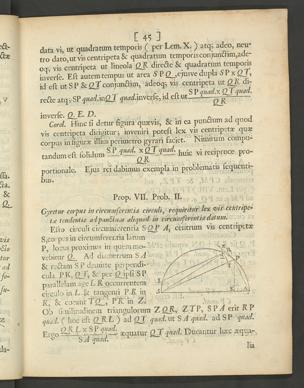 [ 45 ]
data vi, ut quadratum temporis ( per Lem. X. ) atq; adeo, neu-
tro dato, ut vis centripeta & quadratum temporis conjunctim, ade-
oq; vis centripeta ut lineola QR directe & quadratum temporis
inverse. Est autem tempus ut area SPQ, ejusve dupla SP x QT,
id est ut SP & QT conjunctim, adeoq; vis centripeta ut QR di-
recte atq; SP quad. in QT quad. inverse, id est ut SP quad. x QT quad.
QR
inverse. Q. E. D.
Corol. Hinc si detur figura quævis, & in ea punctum ad quod
vis centripeta dirigitur; inveniri potest lex vis centripetæ quæ
corpus in figuræ illius perimetro gyrari faciet. Nimirum compu-
tandum est solidum SP quad. x QT quad. huic vi reciproce pro-
QR
portionale. Ejus rei dabimus exempla in problematis sequenti-
bus.
Prop. VII. Prob. II.
Gyretur corpus in circumferentia circuli, requiritur lex vis centripe-
tæ tendentis ad punctum aliquod in circumferentia datum.
Esto circuli circumferentia SQPA, centrum vis centripetæ
S, corpus in circumferentia latum
P, locus proximus in quem mo-
vebitur Q. Ad diametrum SA
& rectam SP demitte perpendi-
cula PK, QT, & per Q ipsi SP
parallelam age LR occurrentem
circulo in L & tangenti PR in
R, & coeant TQ, PR in Z.
Ob similitudinem triangulorum ZQR, ZTP, SPA erit RP
quad. ( hoc est QRL ) ad QT quad. ut SA quad. ad SP quad.
Ergo QRL x SP quad. æquatur QT quad. Ducantur hæc æqua-
SA quad.
lia